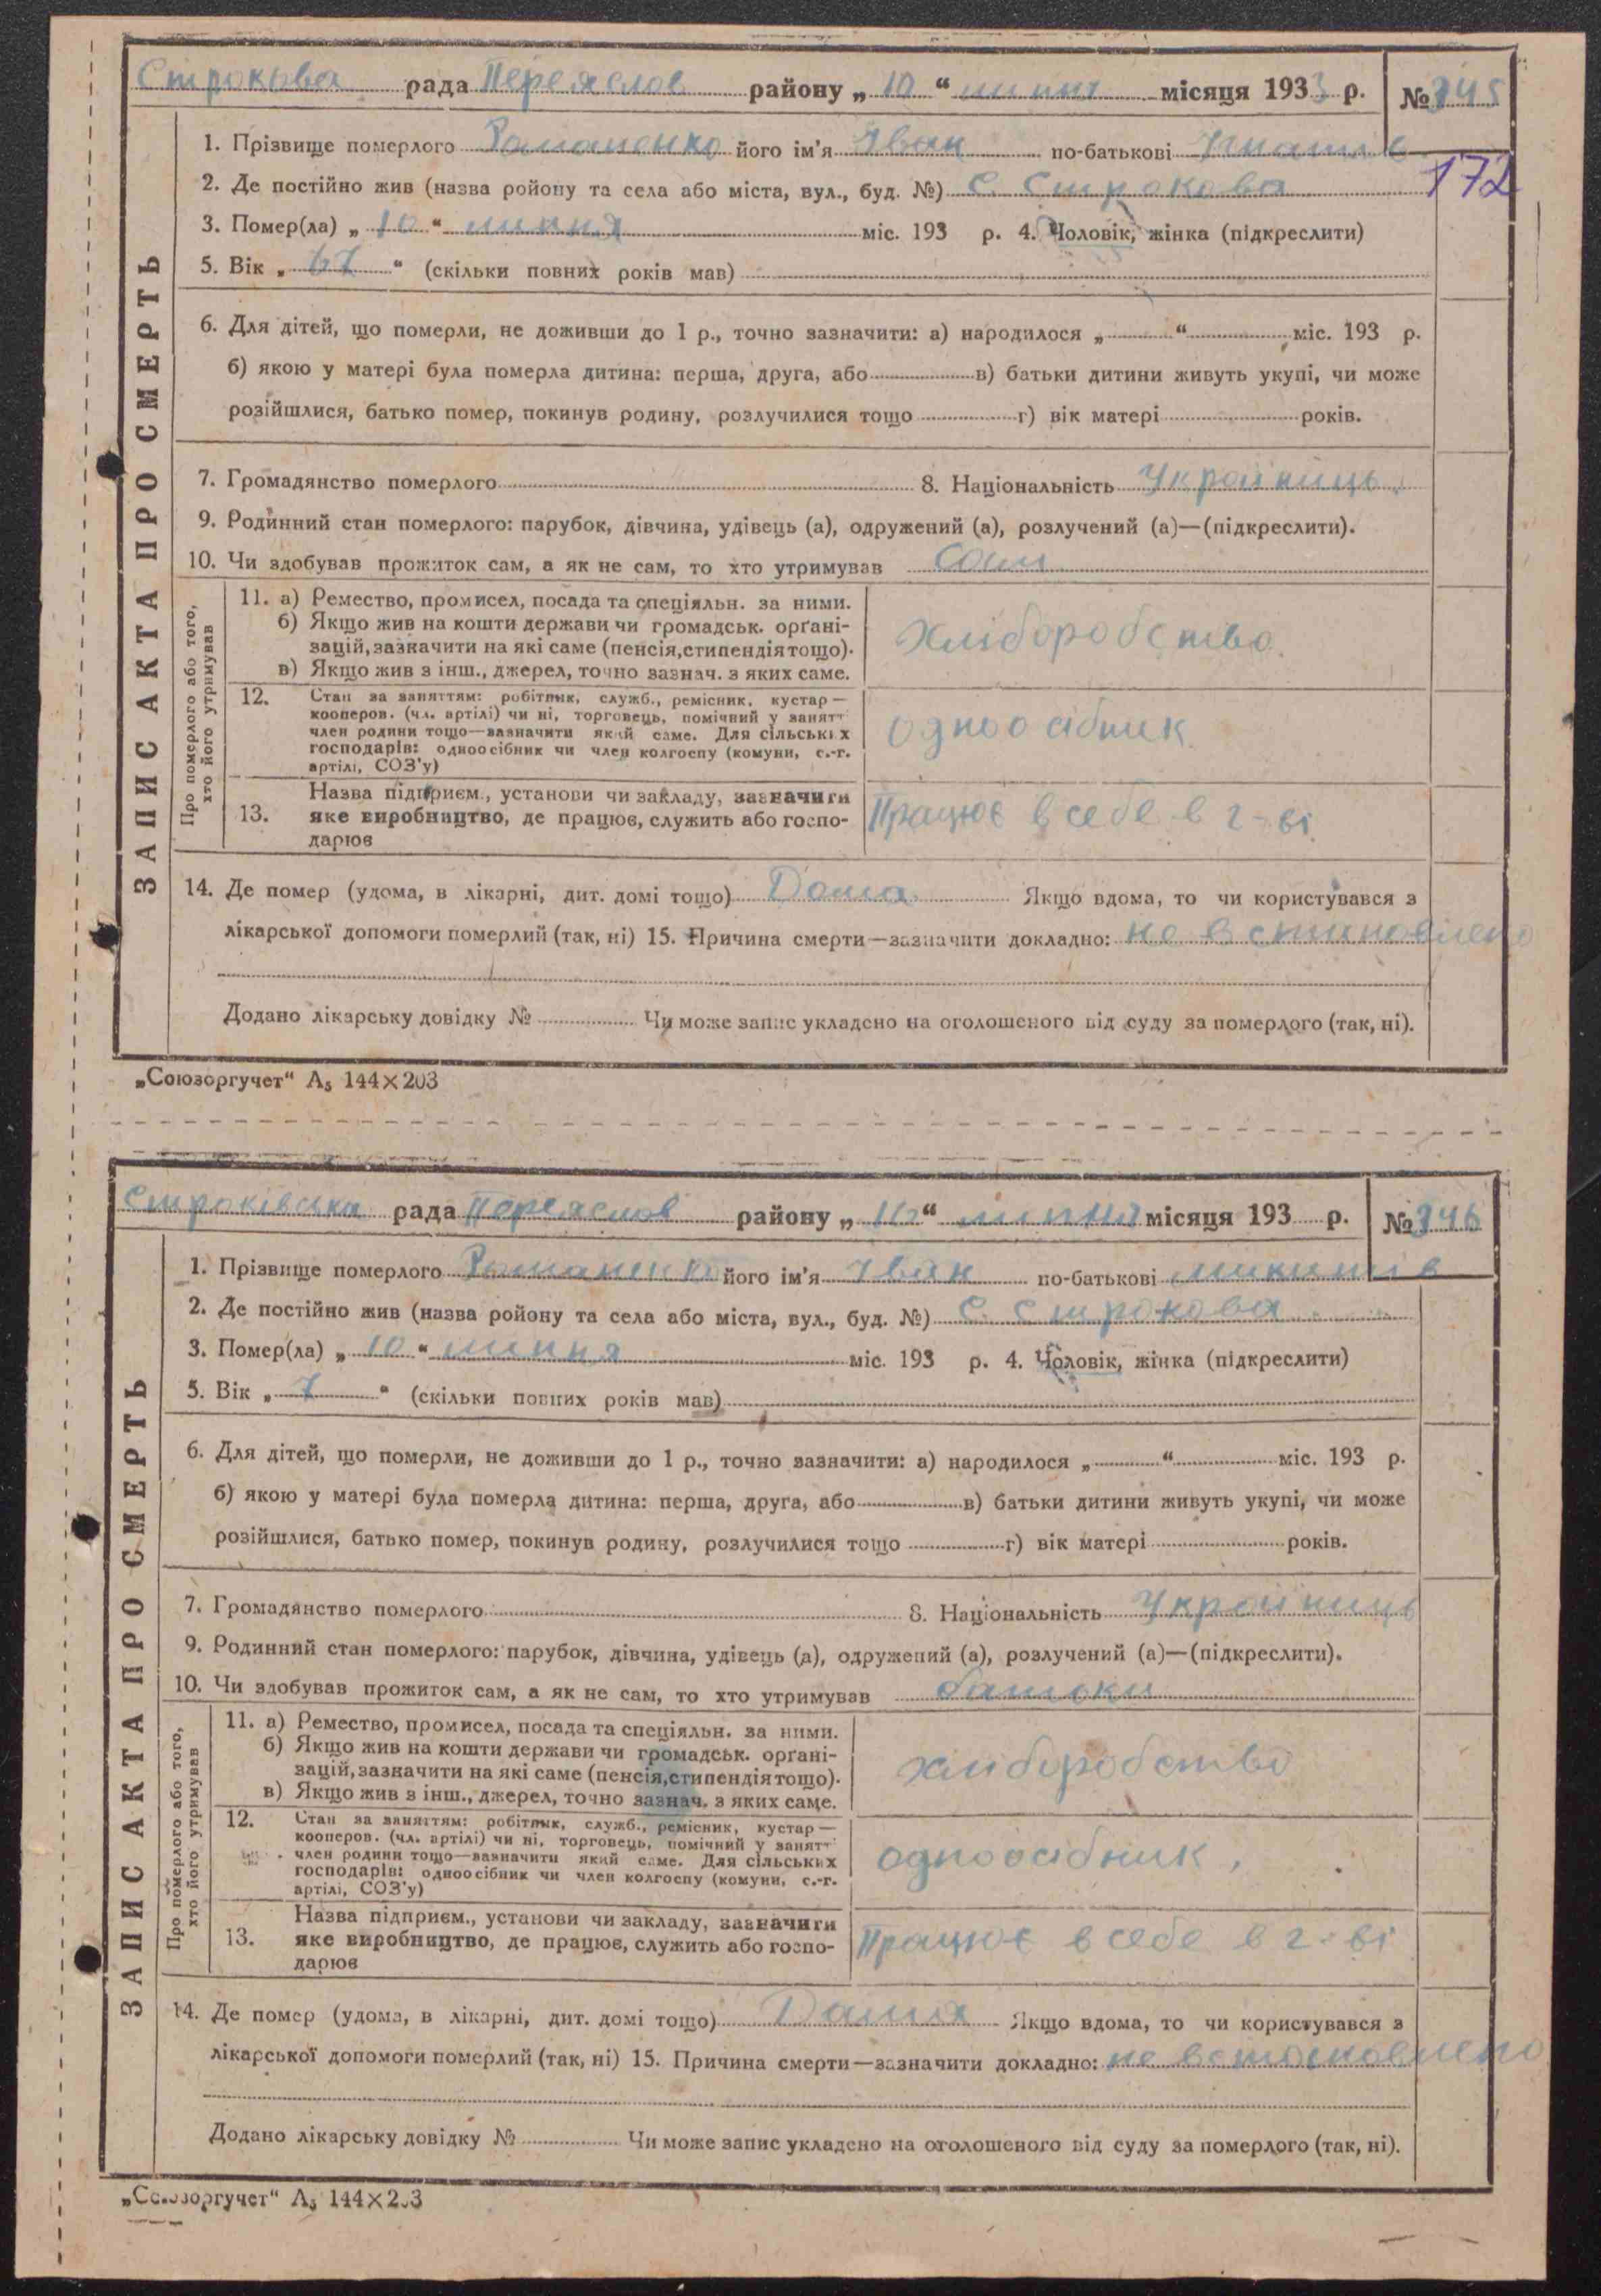 Строкова рада Переяслов району „ 10 “ липня місяця 1933 р. № 345
172
ЗАПИС АКТА ПРО СМЕРТЬ
1. Прізвище померлого Романенко його ім'я Іван по-батькові Гнатів
2. Де постійно жив (назва ройону та села або міста, вул., буд. №) с. Строкова
3. Помер(ла) „ 10 “ липня міс. 193 р. 4. Чоловік, жінка (підкреслити)
5. Вік „ 67 “ (скільки повних років мав)
6. Для дітей, що померли, не доживши до 1 р., точно зазначити: а) народилося „ “ міс. 193 р.
б) якою у матері була померла дитина: перша, друга, або в) батьки дитини живуть укупі, чи може
розійшлися, батько помер, покинув родину, розлучилися тощо г) вік матері років.
7. Громадянство померлого 8. Національність Українць
9. Родинний стан померлого: парубок, дівчина, удівець (а), одружений (а), розлучений (а)—(підкреслити).
10. Чи здобував прожиток сам, а як не сам, то хто утримував Сам
Про померлого або того, хто його утримував
11. а) Ремество, промисел, посада та спеціяльн. за ними.
б) Якщо жив на кошти держави чи громадськ. орґані-
зацій, зазначити на які саме (пенсія, стипендія тощо).
в) Якщо жив з інш., джерел, точно зазнач. з яких саме.
Хліборобство
12. Стан за заняттям: робітник, служб., ремісник, кустар—
кооперов. (чл. артілі) чи ні, торговець, помічний у занятт
член родини тощо—зазначити який саме. Для сільських
господарів: одноосібник чи член колгоспу (комуни, с.-г.
артілі, СОЗ'у)
одноосібник
13. Назва підприєм., установи чи закладу, зазначити
яке виробництво, де працює, служить або госпо-
дарює
Працює в себе в г-ві
14. Де помер (удома, в лікарні, дит. домі тощо) Дома Якщо вдома, то чи користувався з
лікарської допомоги померлий (так, ні) 15. Причина смерти—зазначити докладно: не встановлено
Додано лікарську довідку № Чи може запис укладено на оголошеного від суду за померлого (так, ні).
„Союзоргучет“ А₅ 144×203
Строківська рада Переяслов району „ 10 “ липня місяця 193 р. № 346
ЗАПИС АКТА ПРО СМЕРТЬ
1. Прізвище померлого Романенко його ім'я Іван по-батькові Микитів
2. Де постійно жив (назва ройону та села або міста, вул., буд. №) С. Строкова
3. Помер(ла) „ 10 “ липня міс. 193 р. 4. Чоловік, жінка (підкреслити)
5. Вік „ 7 “ (скільки повних років мав)
6. Для дітей, що померли, не доживши до 1 р., точно зазначити: а) народилося „ “ міс. 193 р.
б) якою у матері була померла дитина: перша, друга, або в) батьки дитини живуть укупі, чи може
розійшлися, батько помер, покинув родину, розлучилися тощо г) вік матері років.
7. Громадянство померлого 8. Національність Українць
9. Родинний стан померлого: парубок, дівчина, удівець (а), одружений (а), розлучений (а)—(підкреслити).
10. Чи здобував прожиток сам, а як не сам, то хто утримував батьки
Про померлого або того, хто його утримував
11. а) Ремество, промисел, посада та спеціяльн. за ними.
б) Якщо жив на кошти держави чи громадськ. орґані-
зацій, зазначити на які саме (пенсія, стипендія тощо).
в) Якщо жив з інш., джерел, точно зазнач. з яких саме.
хліборобство
12. Стан за заняттям: робітник, служб., ремісник, кустар—
кооперов. (чл. артілі) чи ні, торговець, помічний у занятт
член родини тощо—зазначити який саме. Для сільських
господарів: одноосібник чи член колгоспу (комуни, с.-г.
артілі, СОЗ'у)
одноосібник,
13. Назва підприєм., установи чи закладу, зазначити
яке виробництво, де працює, служить або госпо-
дарює
Працює в себе в г-ві
14. Де помер (удома, в лікарні, дит. домі тощо) Дома Якщо вдома, то чи користувався з
лікарської допомоги померлий (так, ні) 15. Причина смерти—зазначити докладно: не встановлено
Додано лікарську довідку № Чи може запис укладено на оголошеного від суду за померлого (так, ні).
„Союзоргучет“ А₅ 144×203